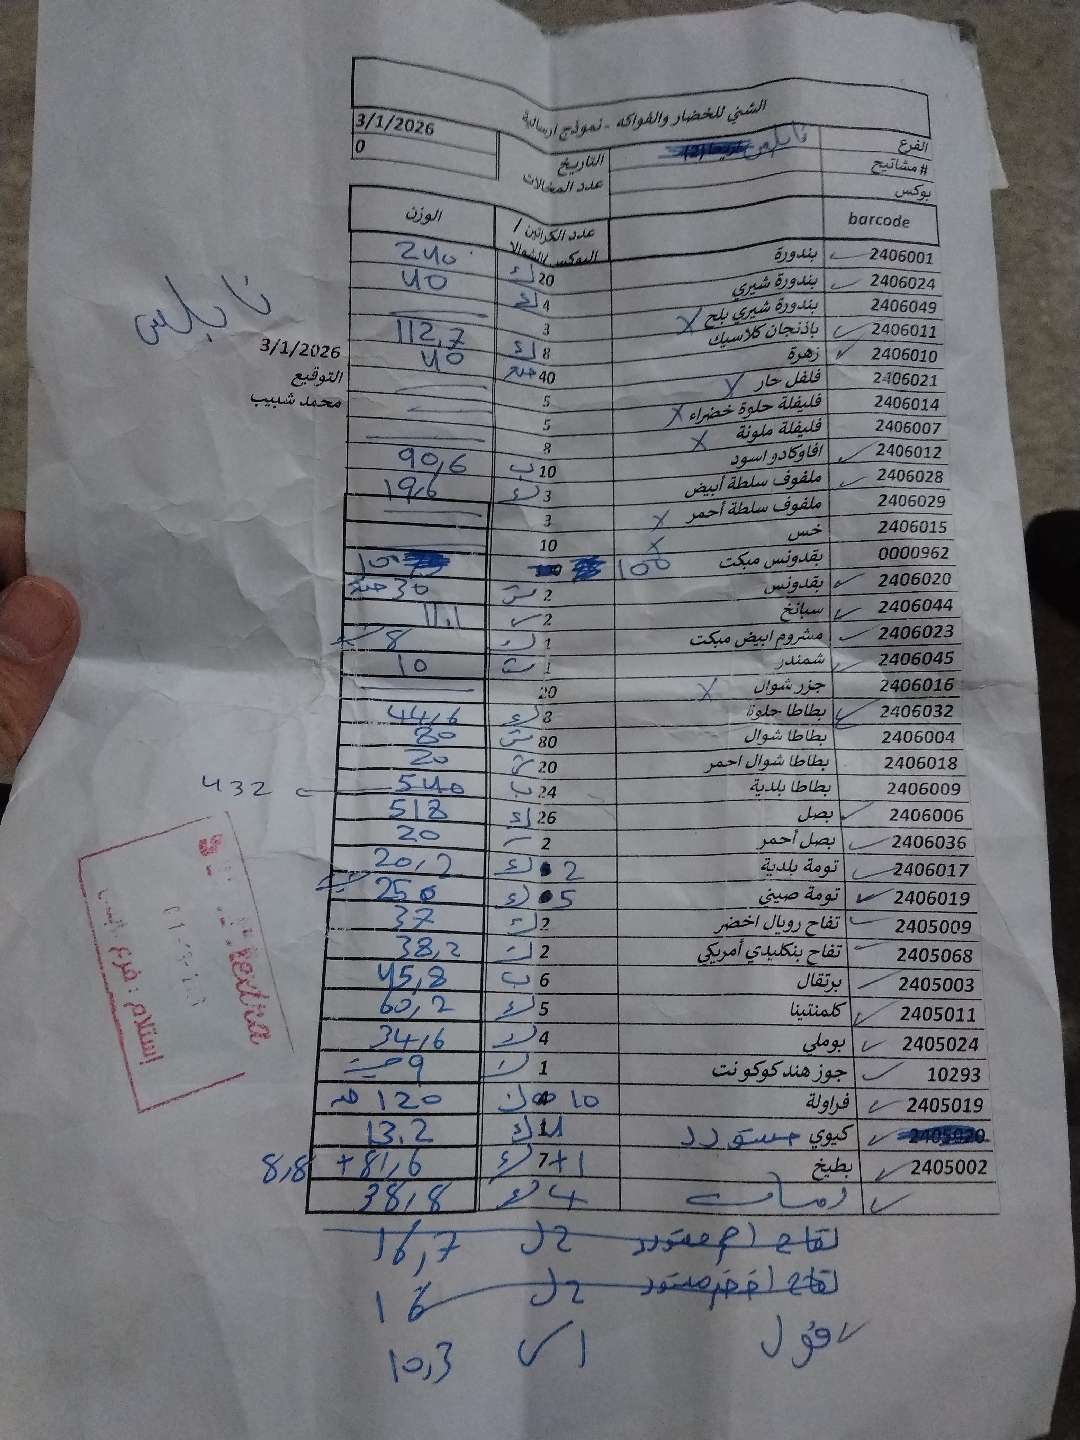 الشني للخضار والفواكه - نموذج ارسالية
الفرع نابلس
#مشاتيح التاريخ 3/1/2026
بوكس عدد المخالات 0
barcode عدد الكراتين / البوكس/الشوالا الوزن
2406001 بندورة 20 ك 240
2406024 بندورة شيري 4 ك 40
2406049 بندورة شيري بلح X 3
2406011 باذنجان كلاسيك 8 ك 112,7
2406010 زهرة 40 حبة 40
2406021 فلفل حار X 5
2406014 فليفلة حلوة خضراء X 5
2406007 فليفلة ملونة X 8
2406012 افاوكادو اسود 10 ب 90,6
2406028 ملفوف سلطة أبيض 3 ك 19,6
2406029 ملفوف سلطة أحمر X 3
2406015 خس X 10
0000962 بقدونس مبكت 100 100
2406020 بقدونس 2 ش 30 حبة
2406044 سبانخ 2 11,1
2406023 مشروم ابيض مبكت 1 ك 8
2406045 شمندر 1 ش 10
2406016 جزر شوال X 20
2406032 بطاطا حلوة 8 ك 44,6
2406004 بطاطا شوال 80 ش 80
2406018 بطاطا شوال احمر 20 ش 20
2406009 بطاطا بلدية 24 ب 540 432
2406006 بصل 26 ك 518
2406036 بصل أحمر 2 20
2406017 تومة بلدية 2 ك 20,2
2406019 تومة صيني 5 ك 250
2405009 تفاح رويال اخضر 2 ك 37
2405068 تفاح بنكليدي أمريكي 2 ك 38,2
2405003 برتقال 6 ب 45,8
2405011 كلمنتينا 5 ك 60,2
2405024 بوملي 4 ك 34,6
10293 جوز هند كوكو نت 1 ك 9 حبة
2405019 فراولة 10 ك 120
2405020 كيوي مستورد ك 13,2
2405002 بطيخ 7+1 ك 81,6 + 8,8
رمان 4 ك 38,8
تفاح احمر مستورد 2 ك 16,7
تفاح اخضر مستورد 2 ك 16
فول 1 10,3
نابلس
3/1/2026
التوقيع
محمد شبيب
extra
استلام : فرع نابلس